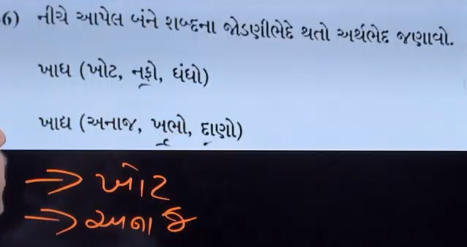 6) નીચે આપેલ બંને શબ્દના જોડણીભેદે થતો અર્થભેદ જણાવો.
ખાધ (ખોટ, નફો, ધંધો)
ખાદ્ય (અનાજ, ખભો, દાણો)
→ ખોટ
→ અનાજ